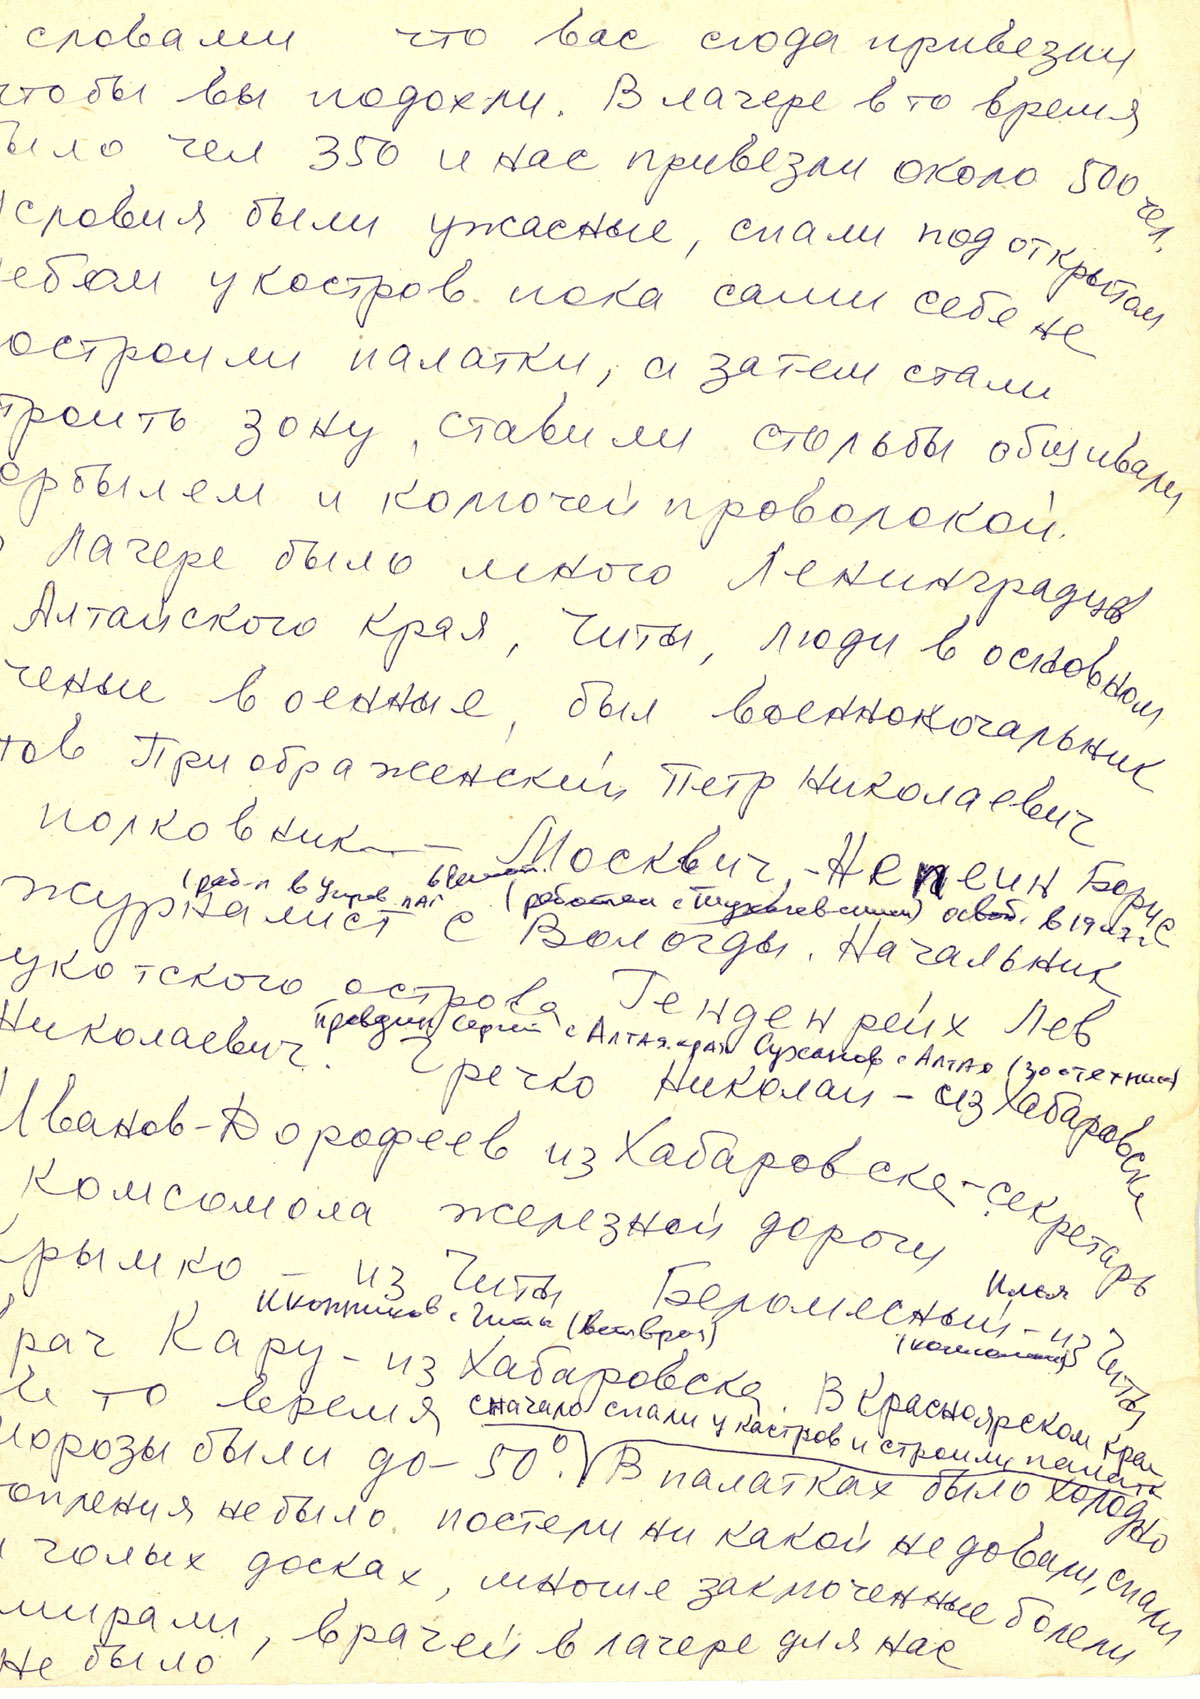 словами что вас сюда привезли
чтобы вы подохли. В лагере в то время
было чел 350 и нас привезли около 500 чел.
словия были ужасные, спали под открытом
ебом у костров пока сами себе не
остроили палатки, а затем стали
троить зону, ставили стольбы обшивали
орбылем и колючей проволокой.
Лагере было много Ленинградцов
Алтайского края, Читы, люди в основном
ченые военные, был военноночальник
тов Приображенский Петр Николаевич
полковник — Москвич, - Непеин Борис
(раб-л в Упров. лаг
(работал с Тухачевским) освоб. в 1947 г.
журналист с Вологды. Начальник
укотского острова Генденрейх Лев
Николаевич. Гречко Николай - из Хабаровска
Сергей с Алтая.края Суханов с Алтая (зоотехник)
Иванов-Дорофеев из Хабаровска - секретарь
Комсомола железной дороги
Крымко - из Читы Беломесный - из Читы
Илья
с Читы (ветврач)
рач Кару - из Хабаровска. В Красноярском крае
то время
сначало спали у кастров и строили палатк
морозы были до - 50°. В палатках было холодно
опления не было постели ни какой не довали, спали
голых досках, многие заключенные болели
мирали, врачей в лагере для нас
не было